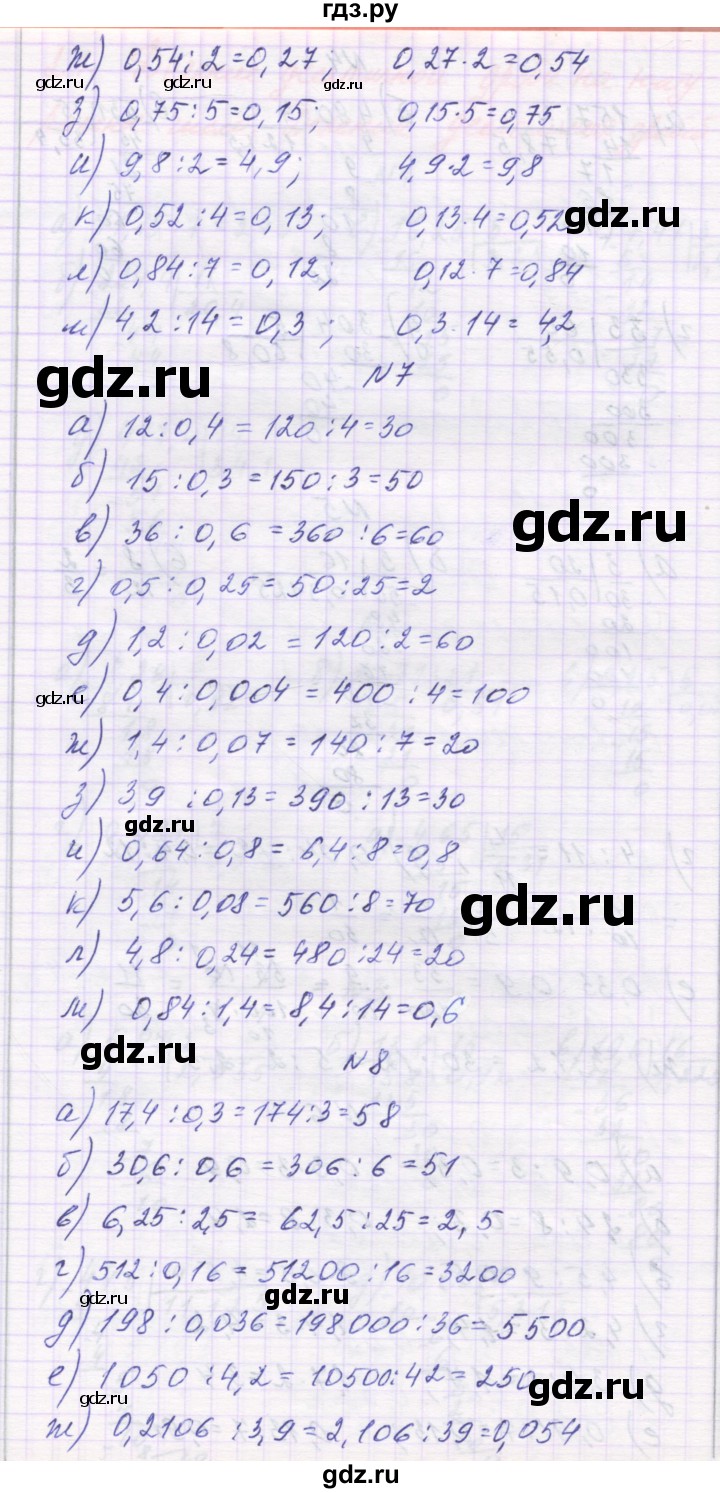 гдз.ру
ж) 0,54:2=0,27; 0,27·2=0,54
gdz.ru gdz.ru
з) 0,75:5=0,15; 0,15·5=0,75
и) 9,8:2=4,9; 4,9·2=9,8
к) 0,52:4=0,13; 0,13·4=0,52
gdz.ru
л) 0,84:7=0,12; 0,12·7=0,84
м) 4,2:14=0,3; 0,3·14=4,2
gdz.ru
N7
а) 12:0,4=120:4=30
б) 15:0,3=150:3=50
в) 36:0,6=360:6=60
gdz.ru
г) 0,5:0,25=50:25=2
д) 1,2:0,02=120:2=60
е) 0,4:0,004=400:4=100
gdz.ru
ж) 1,4:0,07=140:7=20
з) 3,9:0,13=390:13=30
gdz.ru
и) 0,64:0,8=6,4:8=0,8
к) 5,6:0,08=560:8=70
gdz.ru
л) 4,8:0,24=480:24=20
м) 0,84:1,4=8,4:14=0,6
gdz.ru
N8
а) 17,4:0,3=174:3=58
б) 30,6:0,6=306:6=51
в) 6,25:2,5=62,5:25=2,5
г) 512:0,16=51200:16=3200
gdz.ru gdz.ru
д) 198:0,036=198000:36=5500
е) 1050:4,2=10500:42=250
gdz.ru gdz.ru
ж) 0,2106:3,9=2,106:39=0,054
gdz.ru